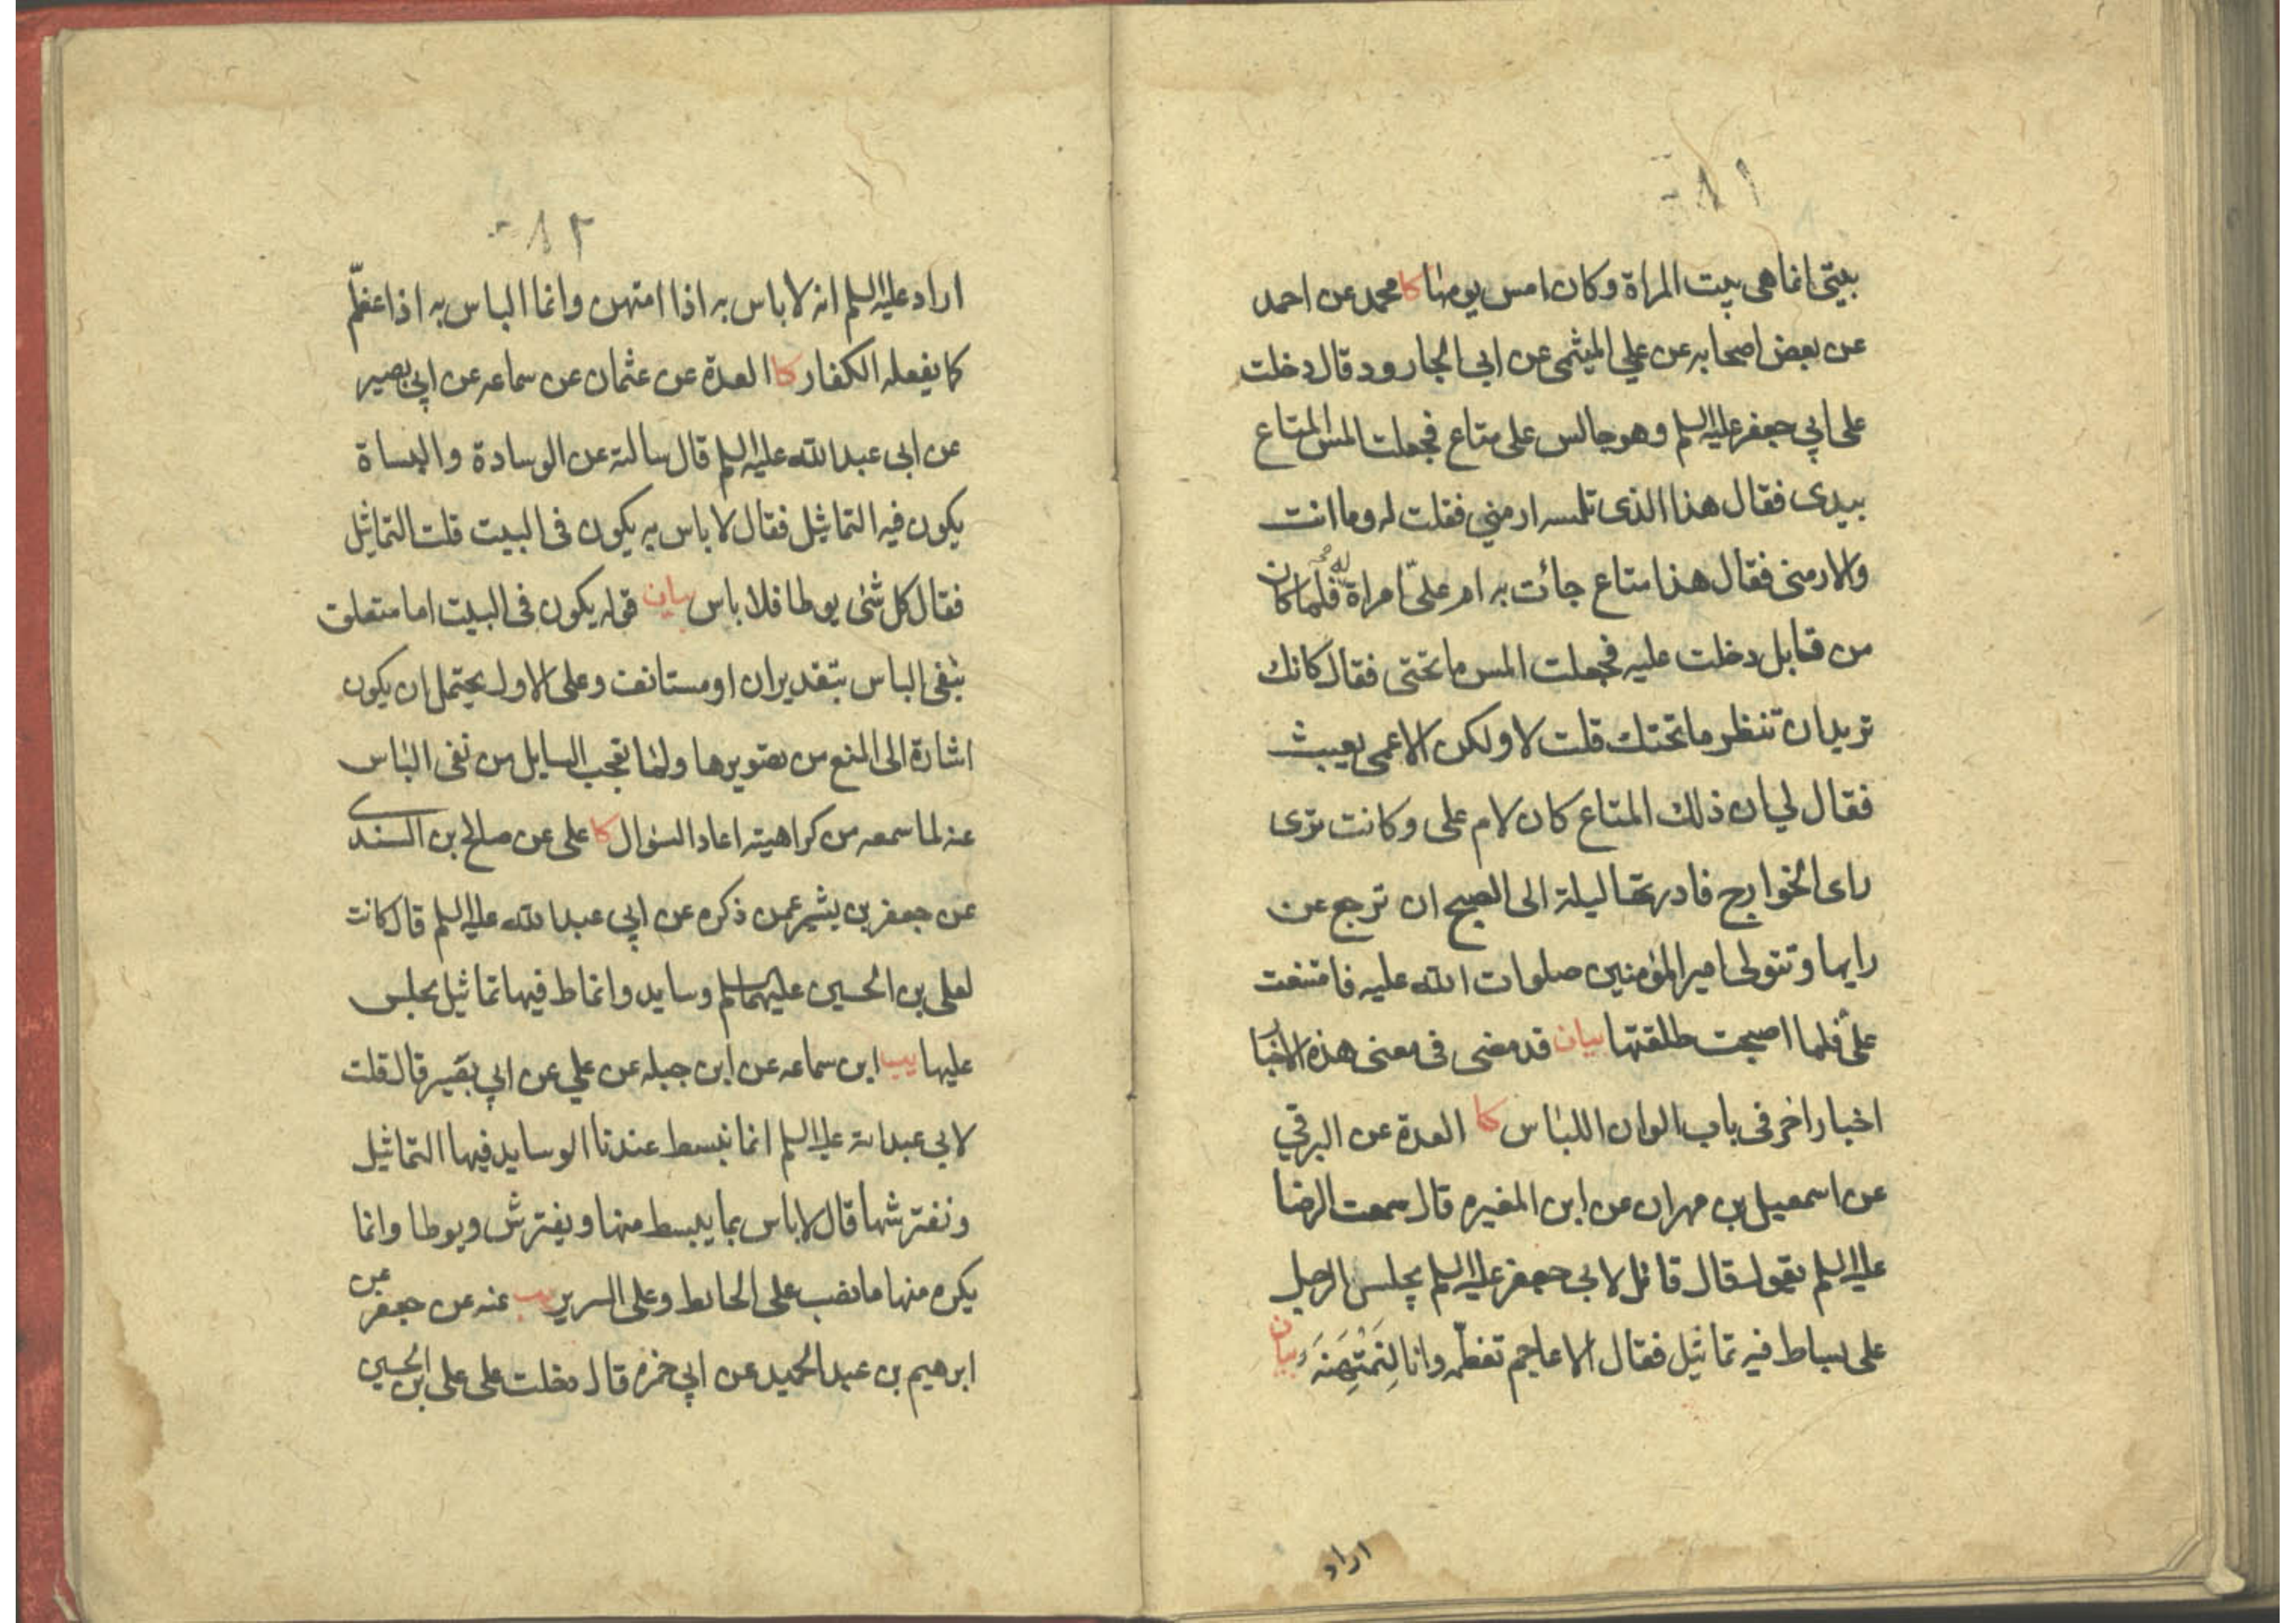 ٨١
بيتى انما هى بيت المراة وكان امس يومها كا محمد عن احمد
عن بعض اصحابه عن علي الميثمى عن ابى الجارود قال دخلت
على ابي جعفر عليه السلم وهو جالس على متاع فجعلت المس المتاع
بيدى فقال هذا الذى تلمسه ارمني فقلت له وما انت
والارمنى فقال هذا متاع جائت به ام علىّ امراة له فلما كان
من قابل دخلت عليه فجعلت المس ما تحتى فقال كانك
تريد ان تنظر ما تحتك قلت لا ولكن الاعمى يعبث
فقال لي ان ذلك المتاع كان لام على وكانت ترى
راى الخوارج فادرتها ليلة الى الصبح ان ترجع عن
رايها وتتولى امير المؤمنين صلوات الله عليه فامتنعت
علىّ فلما اصبحت طلقتها بيان قد مضى فى معنى هذه الاخبار
اخبار اخر فى باب الوان اللباس كا العدة عن البرقي
عن اسمعيل بن مهران عن ابن المغيره قال سمعت الرضا
عليه السلم يقول قال قائل لابى جعفر عليه السلم يجلس الرجل
على بساط فيه تماثيل فقال الاعاجم تعظّمه وانا لنَمْتَهِنَهُ بيان
اراد
٨٢
اراد عليه السلم انه لا باس به اذا امتهن وانما الباس به اذا عظّم
كما يفعله الكفار كا العدة عن عثمان عن سماعه عن ابي بصير
عن ابى عبد الله عليه السلم قال سالته عن الوسادة والبساة
يكون فيه التماثيل فقال لا باس به يكون فى البيت قلت التماثيل
فقال كل شئ يوطا فلا باس بيان قوله يكون فى البيت اما متعلق
بنفى الباس بتقدير ان او مستانف وعلى الاول يحتمل ان يكون
اشارة الى المنع من تصويرها ولما تعجب السايل من نفى الباس
عنه لما سمعه من كراهيته اعاد السؤال كا على عن صالح بن السندى
عن جعفر بن بشير عمن ذكره عن ابي عبد الله عليه السلم قال كانت
لعلى بن الحسين عليهما السلم وسايد وانماط فيها تماثيل يجلس
عليها يب ابن سماعه عن ابن جبله عن علي عن ابي بصير قال قلت
لابي عبد الله عليه السلم انما نبسط عندنا الوسايد فيها التماثيل
ونفترشها قال لا باس بما يبسط منها ويفترش ويوطا وانما
يكره منها ما نصب على الحائط وعلى السرير يب عنه عن جعفر عن
ابرهيم بن عبد الحميد عن ابي حمزه قال دخلت على على بن الحسين